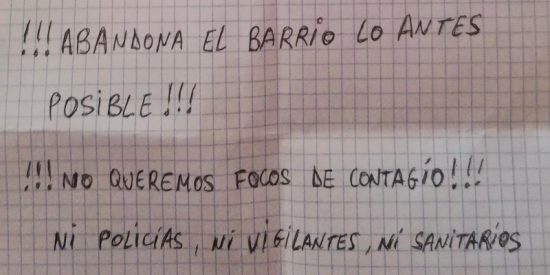 !!! ABANDONA EL BARRiO LO ANTES
POSiBLE!!!
!!! NO QUEREMOS FOCOS DE CONTAGÍO!!!
Ni POLICÍAS, Ni ViGiLANTES, Ni SANiTARÍOS